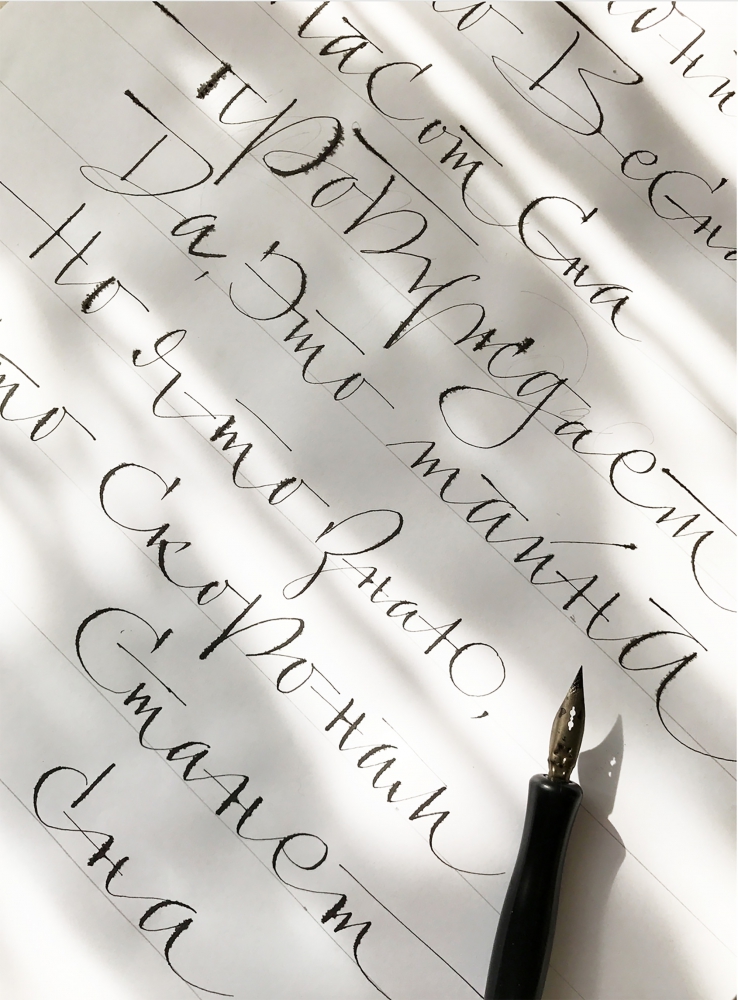 Весна
нас от Сна
пробуждает
Да, Это тайна
Но я то знаю,
что Скоро нам
Станет
Сна